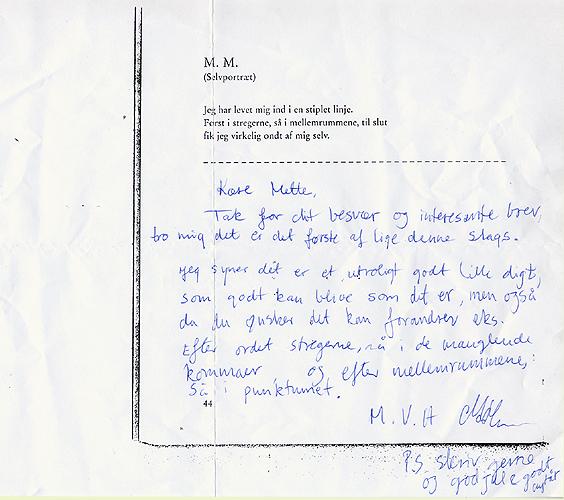 M. M.
(Selvportræt)
Jeg har levet mig ind i en stiplet linje.
Først i stregerne, så i mellemrummene, til slut
fik jeg virkelig ondt af mig selv.
Kære Mette,
Tak for dit besvær og interesante brev,
tro mig det er det første af lige denne slags.
Jeg synes det er et utroligt godt lille digt,
som godt kan blive som det er, men også
da du ønsker det kan forandres eks.
Efter ordet stregerne, så i de manglende
kommaer og efter mellemrummene,
så i punktumet.
44
M. V. H
P.S. skriv gerne
og god jul e godt
nytår